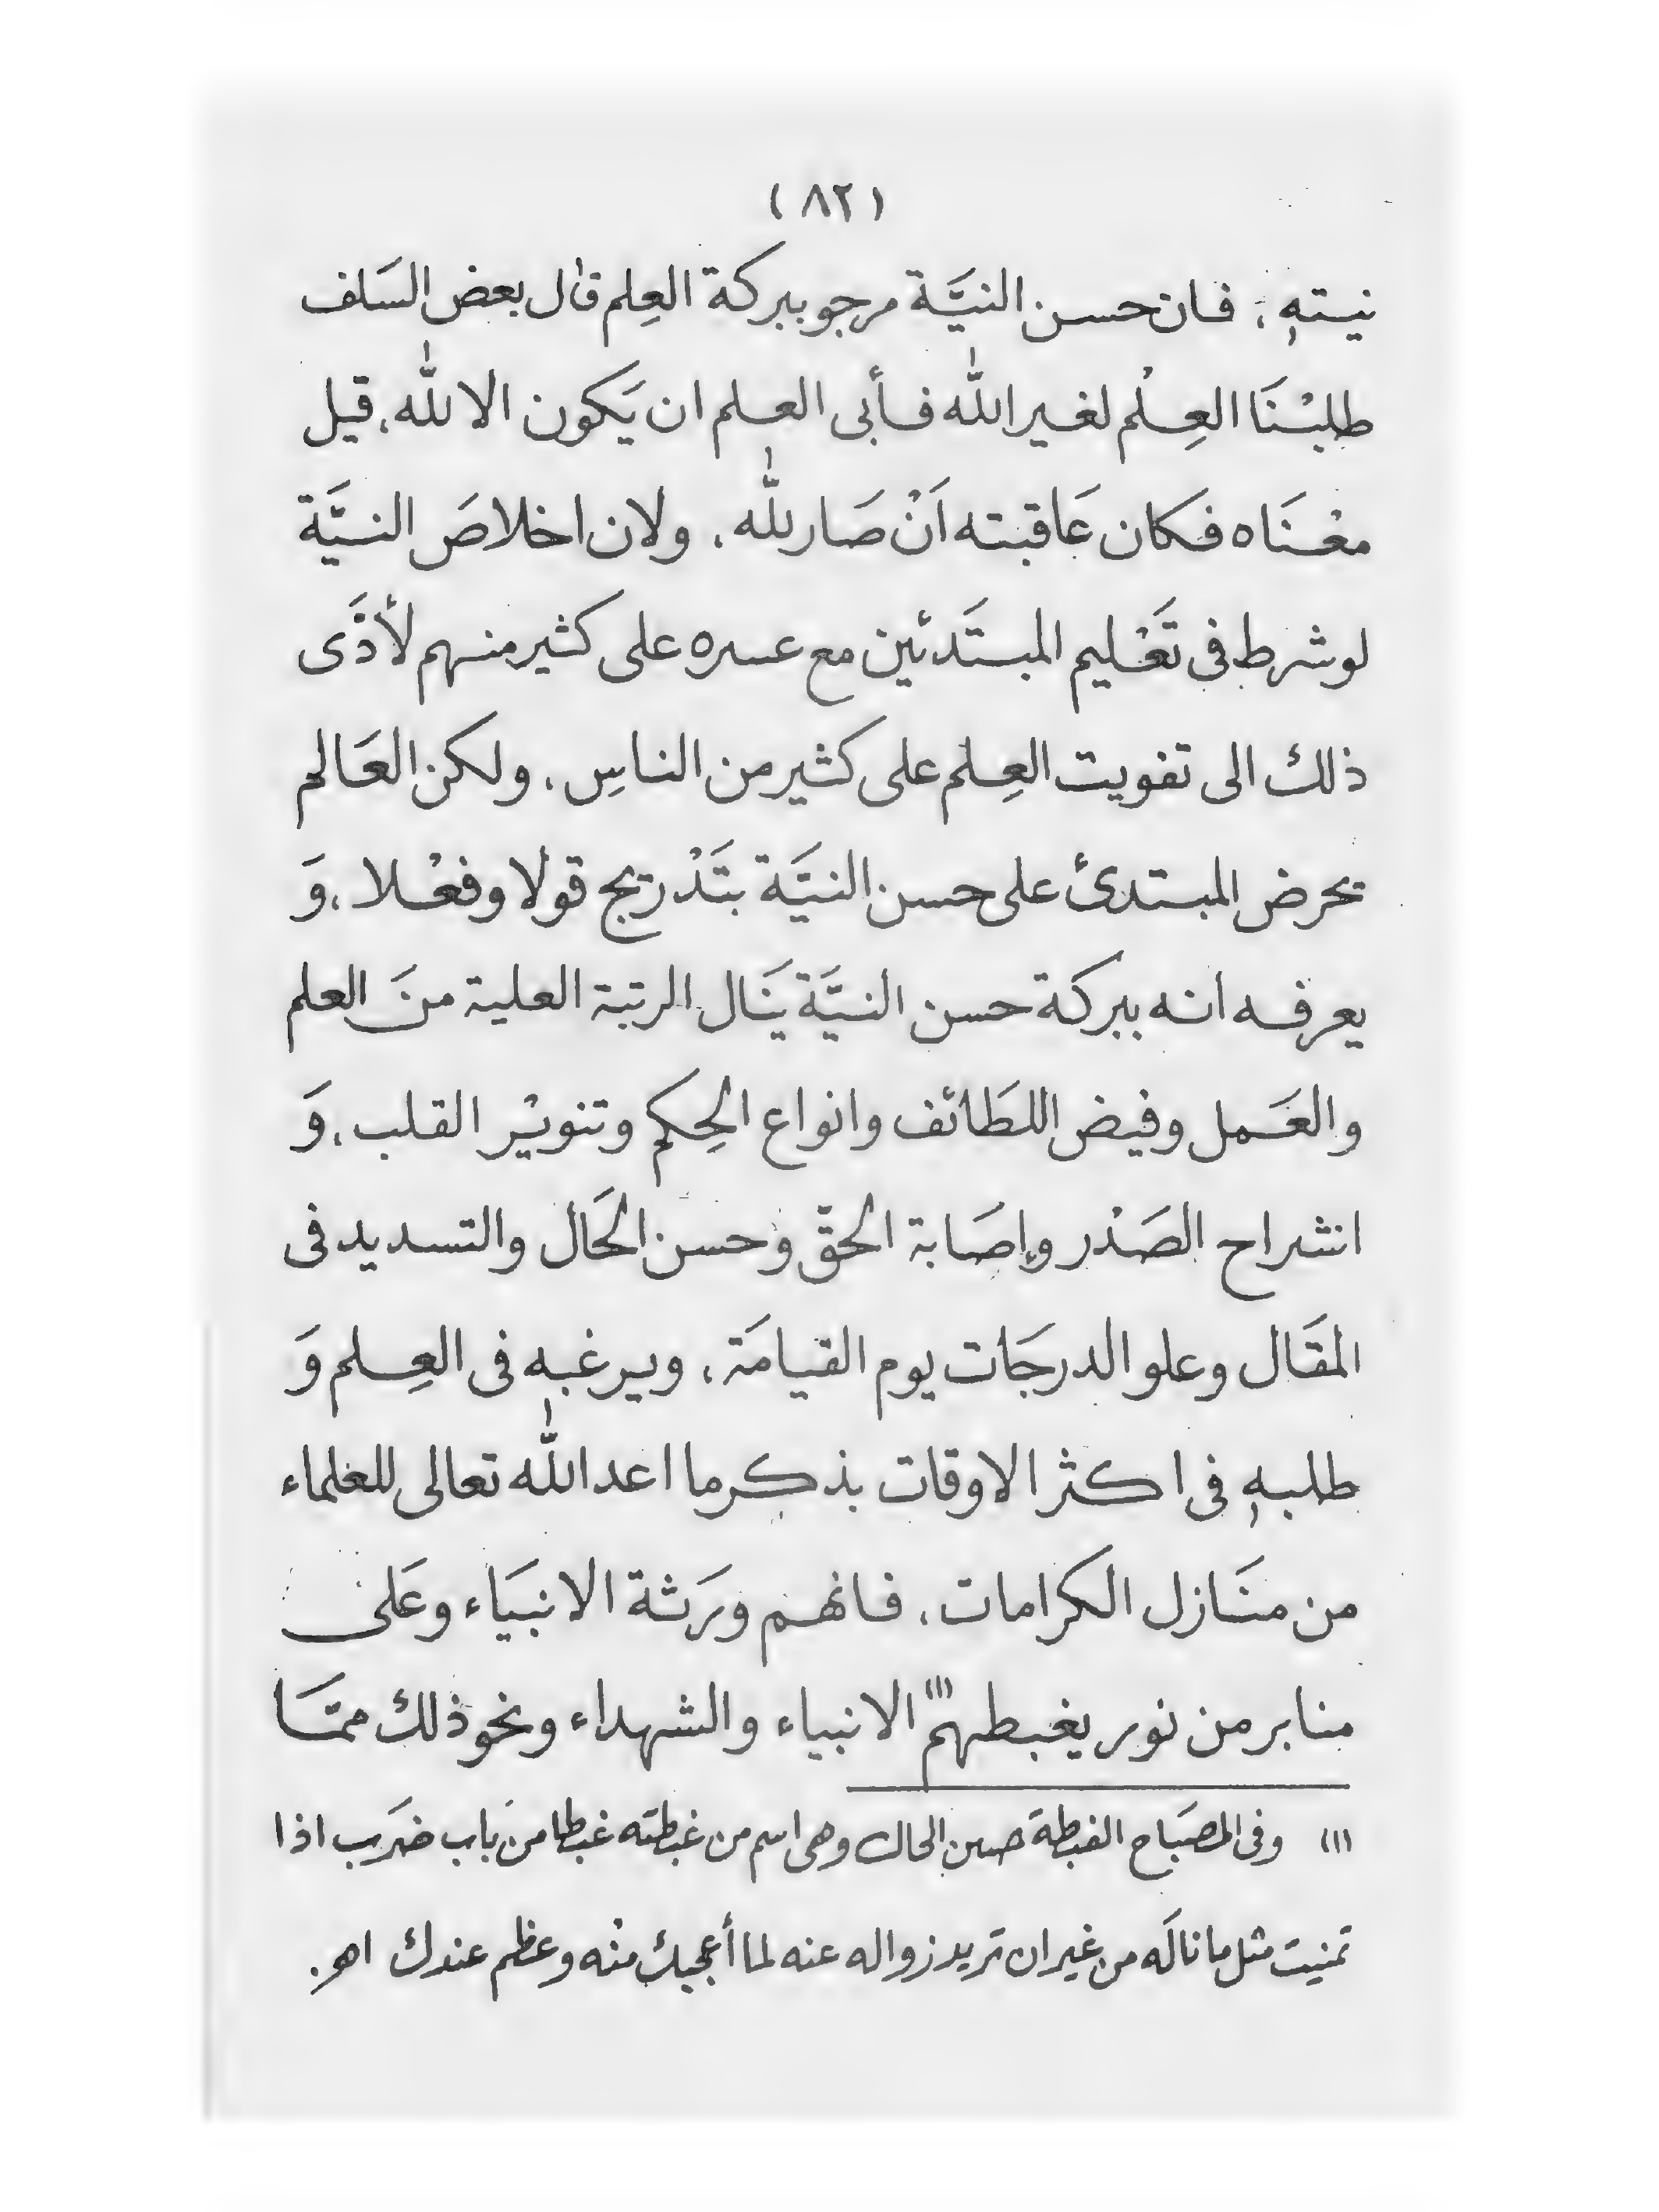 (٨٢)
نيته، فان حسن النيَّة مرجو ببركة العِلم قال بعض السَلف
طلبْنَا العِلْم لغير الله فأبى العلم ان يَكون الا لله، قيل
معْنَاه فكان عَاقبته اَنْ صَار لله، ولان اخلاصَ النيَّة
لو شرط فى تَعْليم المبتَدئين مع عسره على كثير منهم لأدَّى
ذلك الى تفويت العِلم على كثير من الناسِ، ولكن العَالم
يحرض المبتدئ على حسن النيَّة بتَدْريج قولا وفعْلا، وَ
يعرفه انه ببركة حسن النيَّة يَنَال الرتبة العلية منَ العلم
والعَمل وفيض اللطَائف وانواع الحِكم وتنويْر القلب، وَ
انشراح الصَدْر وإصَابة الحقّ وحسن الحَال والتسديد فى
المقَال وعلو الدرجَات يوم القيامَة، ويرغبه فى العِلم وَ
طلبه فى اكثر الاوقات بذكر ما اعد الله تعالى للعلماء
من منَازل الكرامات، فانهم ورَثة الانبيَاء وعَلى
منابر من نور يغبطهم (١) الانبياء والشهداء ونحو ذلك ممَّا
(١) وفى المصبَاح الغبطة حسن الحال وهى اسم من غبطته غبطا من بَاب ضرَب اذا
تمنيت مثل ما نالَه من غير ان تريد زواله عنه لما أعجبك منْه وعظم عندك اهـ.